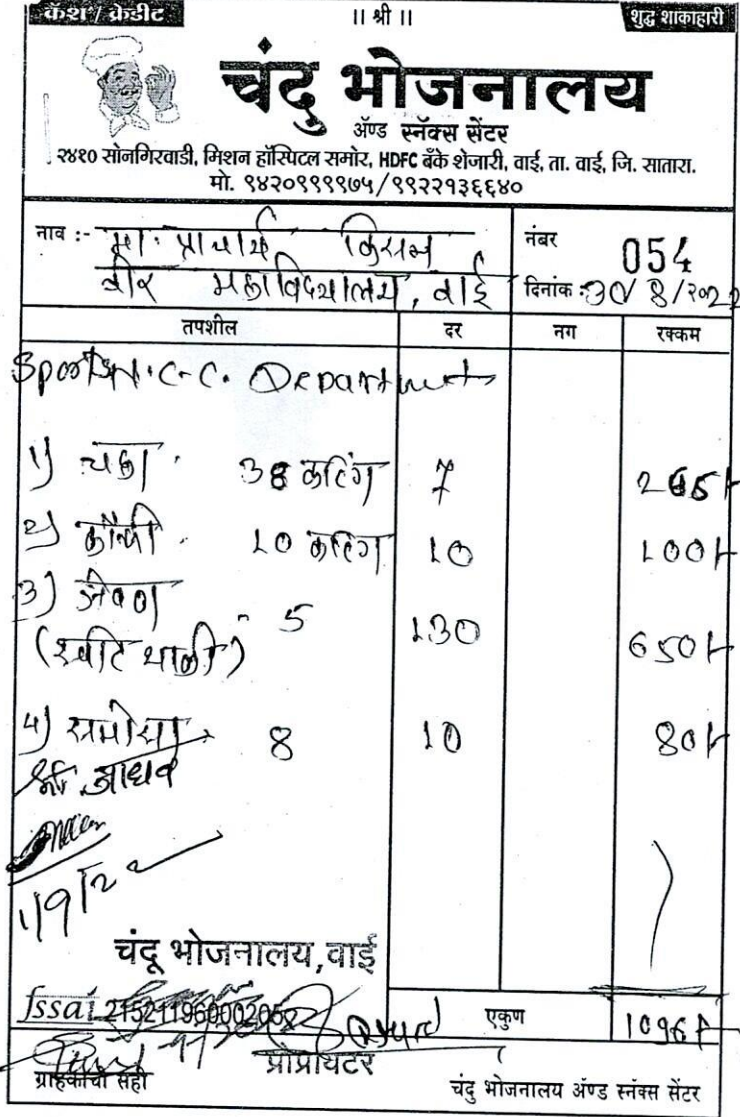 कॅश / क्रेडीट
॥ श्री ॥
शुद्ध शाकाहारी
चंदु भोजनालय
ॲण्ड स्नॅक्स सेंटर
२४१० सोनगिरवाडी, मिशन हॉस्पिटल समोर, HDFC बँके शेजारी, वाई, ता. वाई, जि. सातारा.
मो. ९४२०९९९९७५/९९२२१३६६४०
नाव :- मा. प्राचार्य किसन
वीर महाविद्यालय, वाई
नंबर 054
दिनांक :- 30/8/२०२२
तपशील दर नग रक्कम
Sports N.C.C. Department
1) चहा 38 कटिंग 7 266/-
2) कॉफी 10 कटिंग 10 100/-
3) जेवण
(स्वीट थाळी) 5 130 650/-
4) समोसा 8 10 80/-
श्री. जाधव
1/9/22
चंदू भोजनालय, वाई
fssai 21521196000205
एकुण 1096/-
ग्राहकाची सही
प्रोप्रायटर
चंदु भोजनालय ॲण्ड स्नॅक्स सेंटर